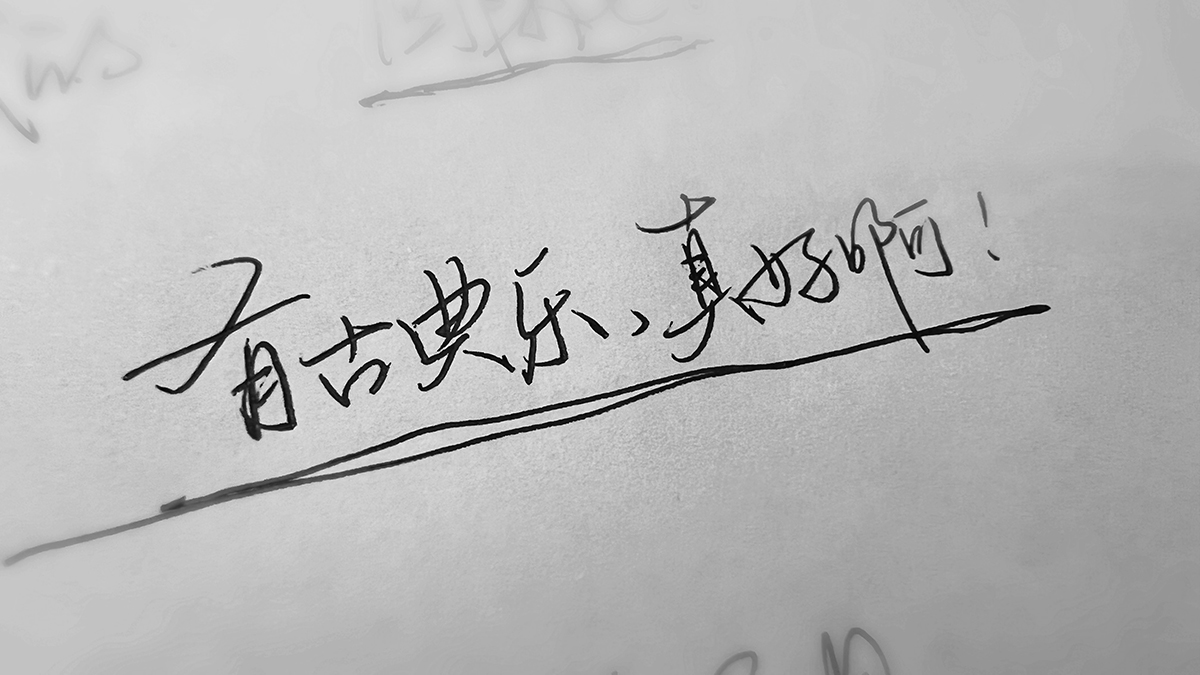 有古典乐、真好啊!